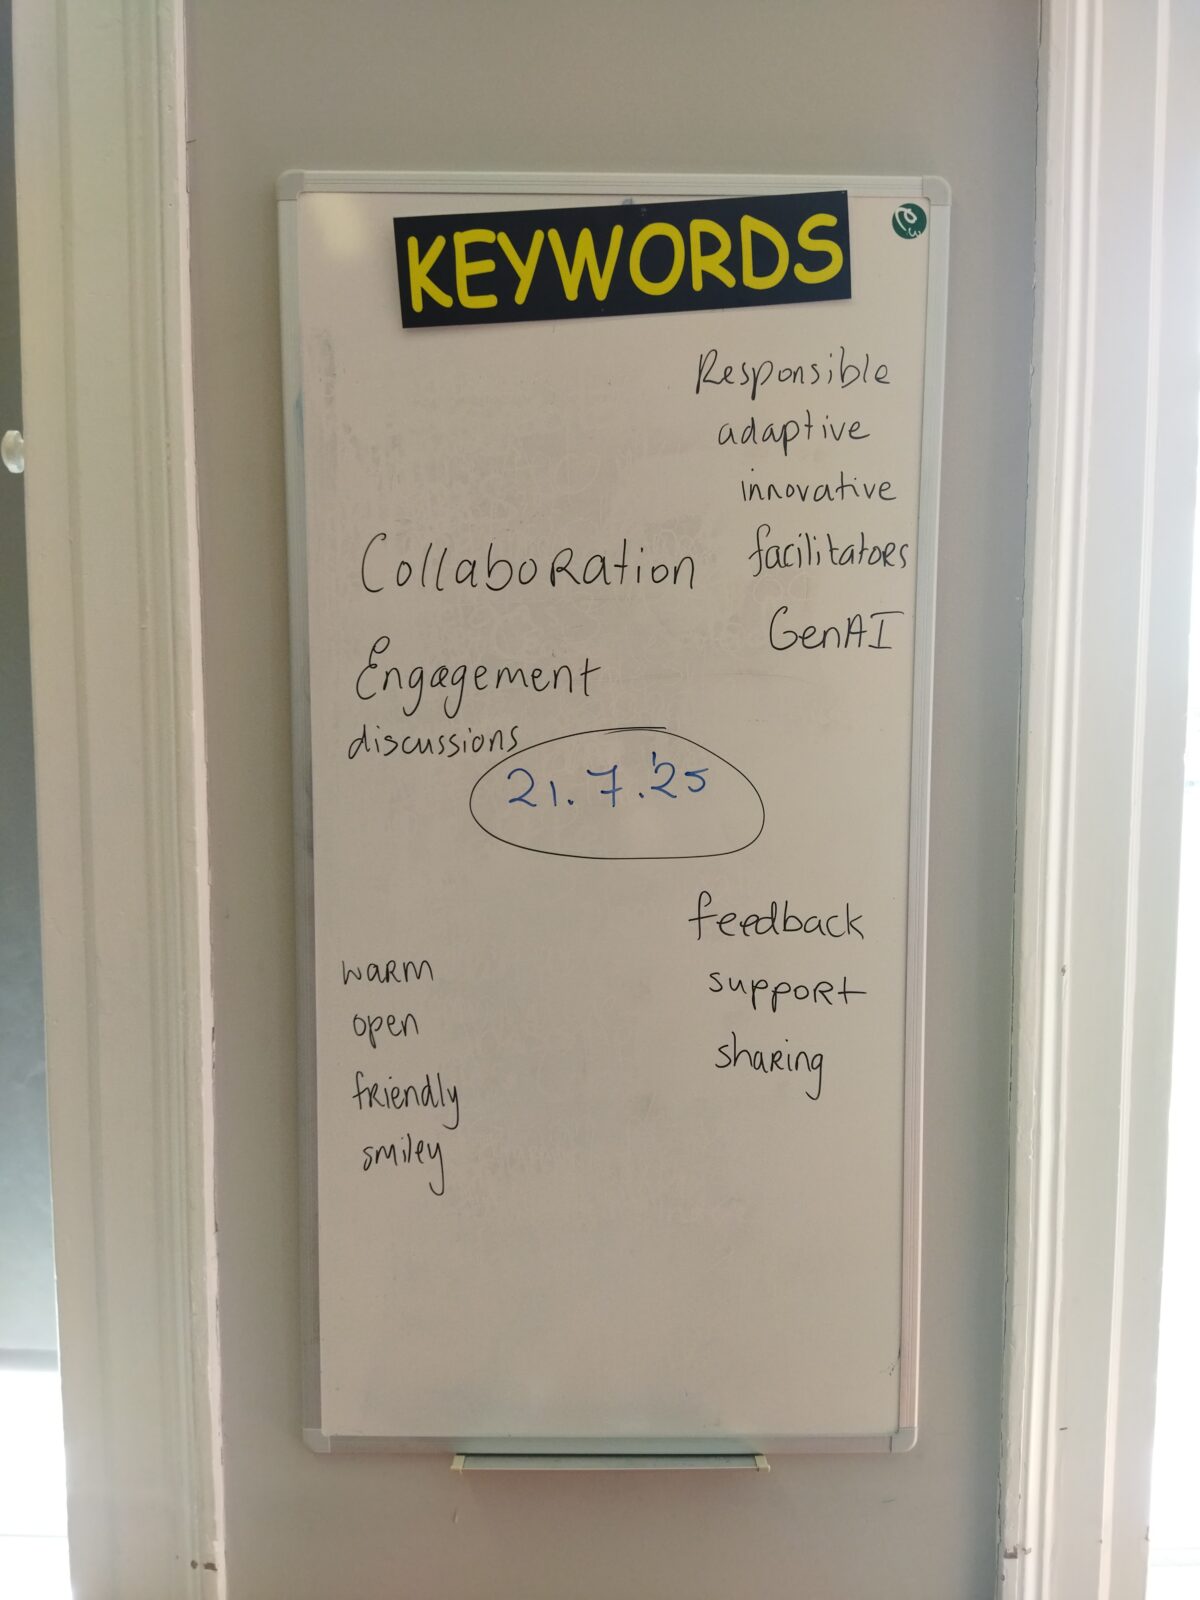 KEYWORDS
Responsible
adaptive
innovative
facilitators
GenAI
Collaboration
Engagement
discussions
21.7.'25
feedback
support
sharing
warm
open
friendly
smiley